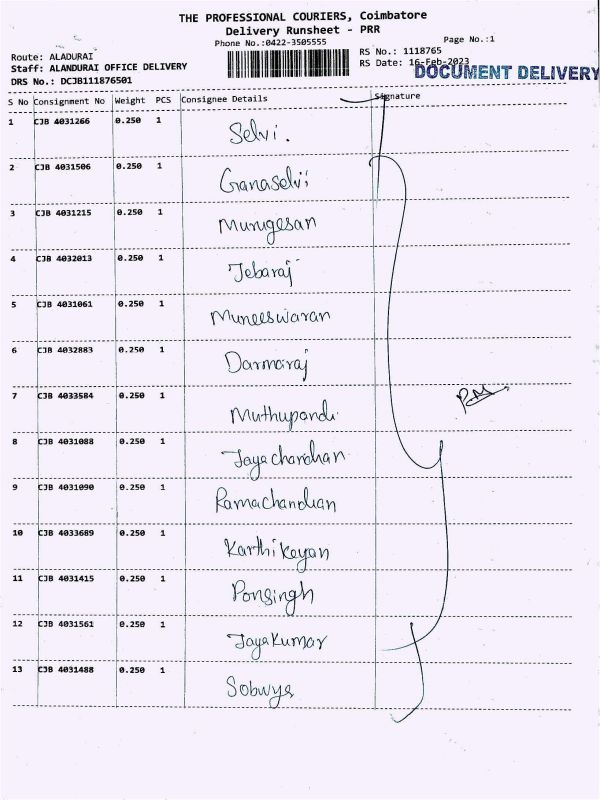 THE PROFESSIONAL COURIERS, Coimbatore
Delivery Runsheet - PRR
Phone No.:0422-3505555
Page No.:1
Route: ALADURAI
RS No.: 1118765
Staff: ALANDURAI OFFICE DELIVERY
RS Date: 16-Feb-2023
DOCUMENT DELIVERY
DRS No.: DCJB111876501
S No Consignment No Weight PCS Consignee Details Signature
1 CJB 4031266 0.250 1 Selvi.
2 CJB 4031506 0.250 1 Ganaselvi
3 CJB 4031215 0.250 1 Murugesan
4 CJB 4032013 0.250 1 Jebaraj
5 CJB 4031061 0.250 1 Muneeswaran
6 CJB 4032883 0.250 1 Darmaraj
7 CJB 4033584 0.250 1 Muthupandi
8 CJB 4031088 0.250 1 Jayachandhan
9 CJB 4031090 0.250 1 Ramachandian
10 CJB 4033689 0.250 1 Karthikeyan
11 CJB 4031415 0.250 1 Ponsingh
12 CJB 4031561 0.250 1 JayaKumar
13 CJB 4031488 0.250 1